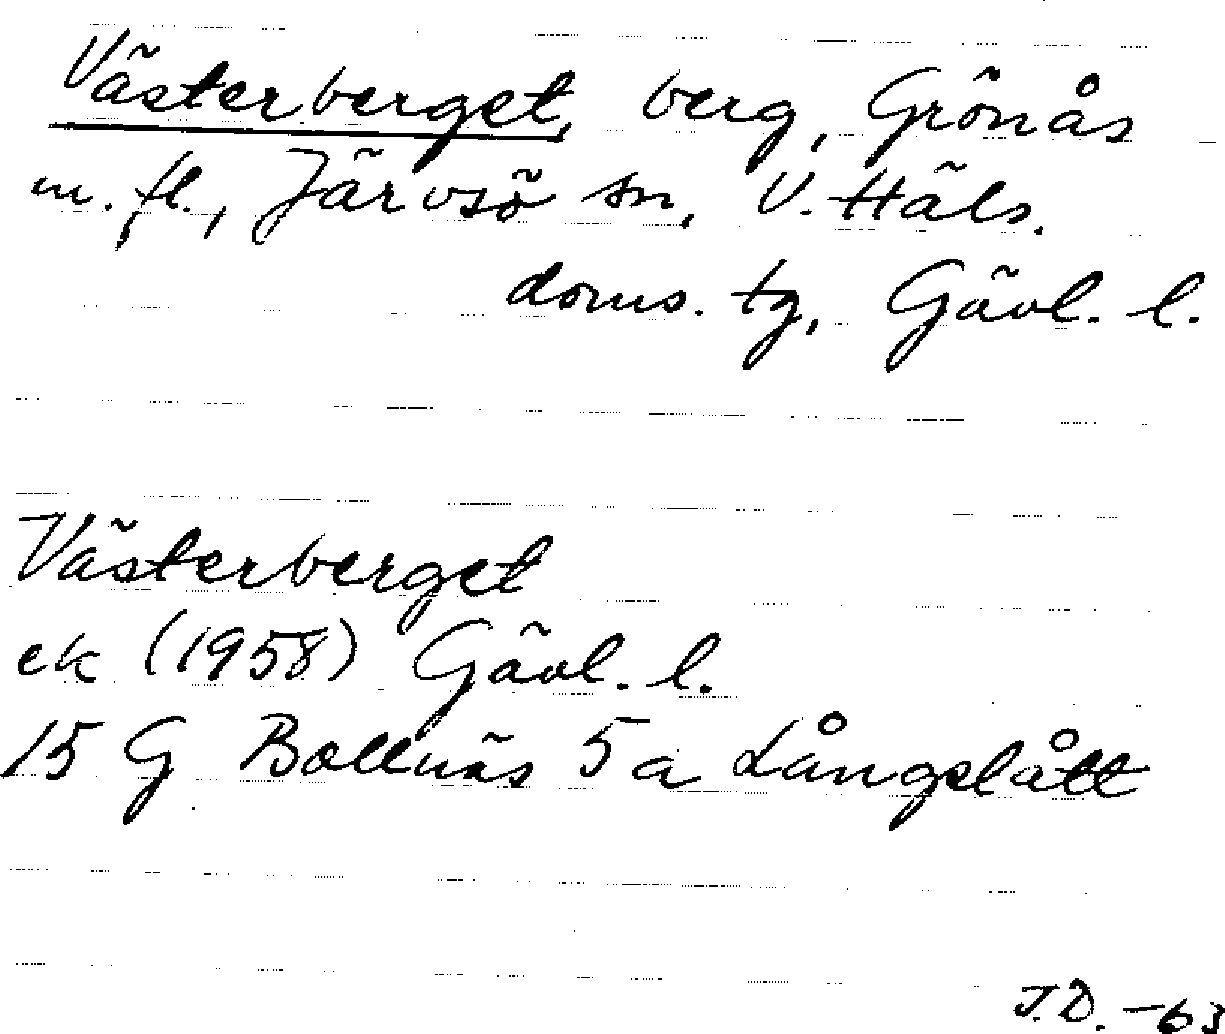 Västerberget, berg, Grönås
m. fl., Järvsö sn, V. Häls.
doms. tg, Gävl. l.
Västerberget
ek (1958) Gävl. l.
15 G Bollnäs 5a Långslått
J.D. -63